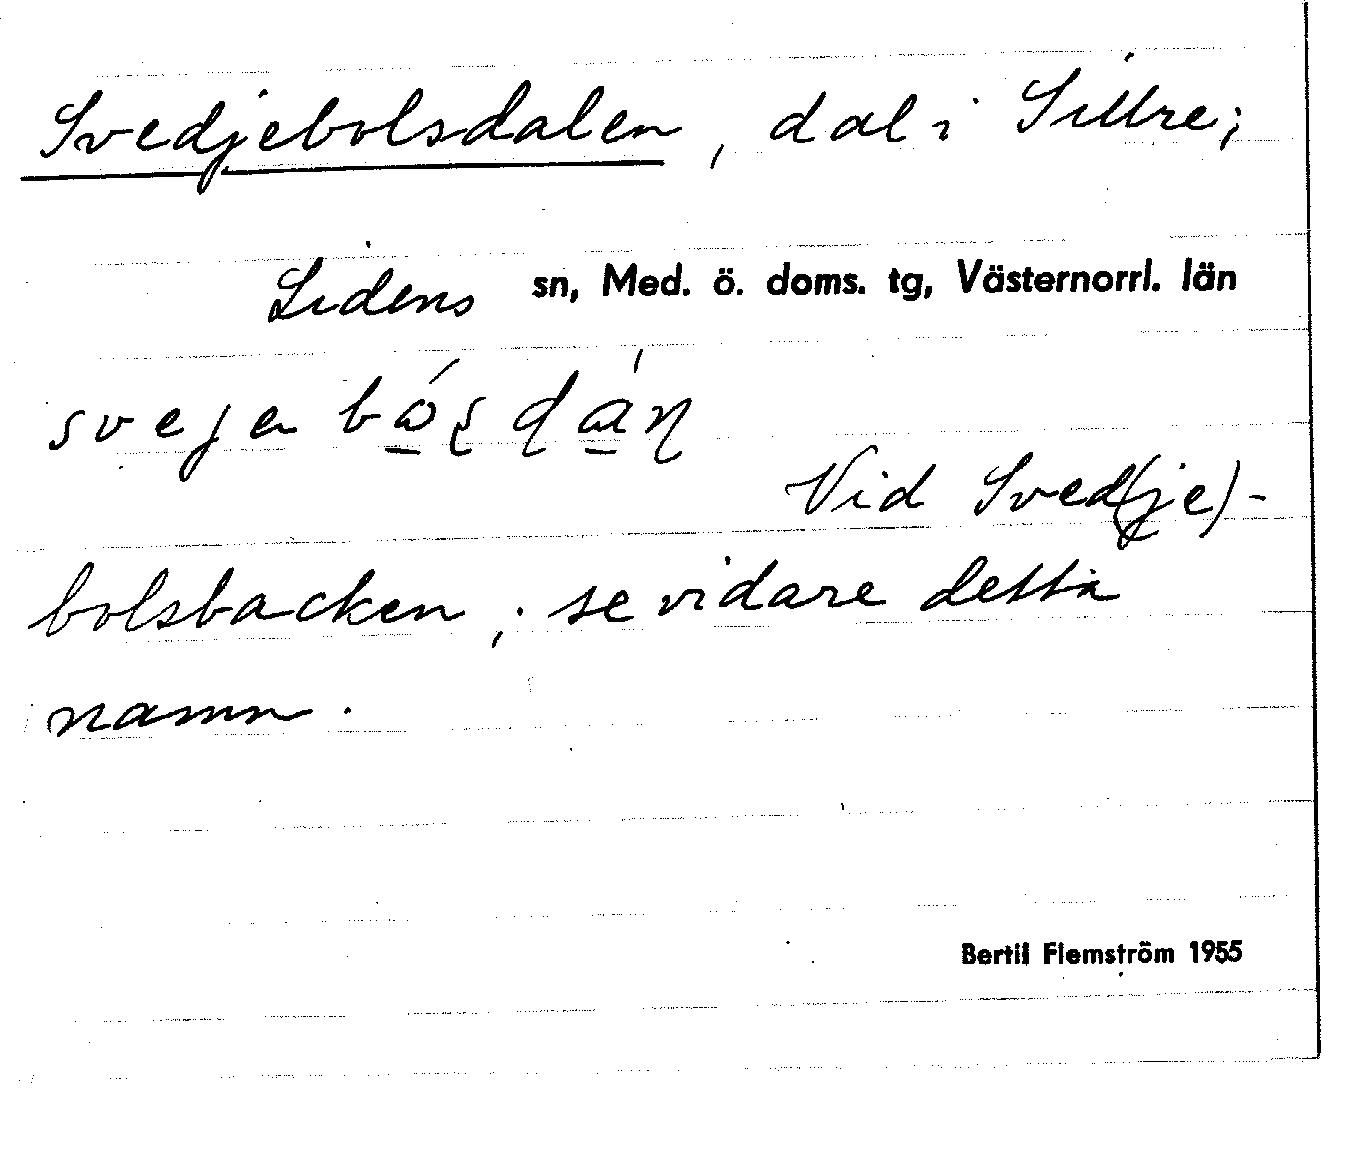 Svedjebolsdalen, dal i Sillre;
Lidens sn, Med. ö. doms. tg, Västernorrl. län
sveje bó̲ʂ ɖá̲ɳ
Vid Sved(je)-
bolsbacken, se vidare detta
namn.
Bertil Flemström 1955